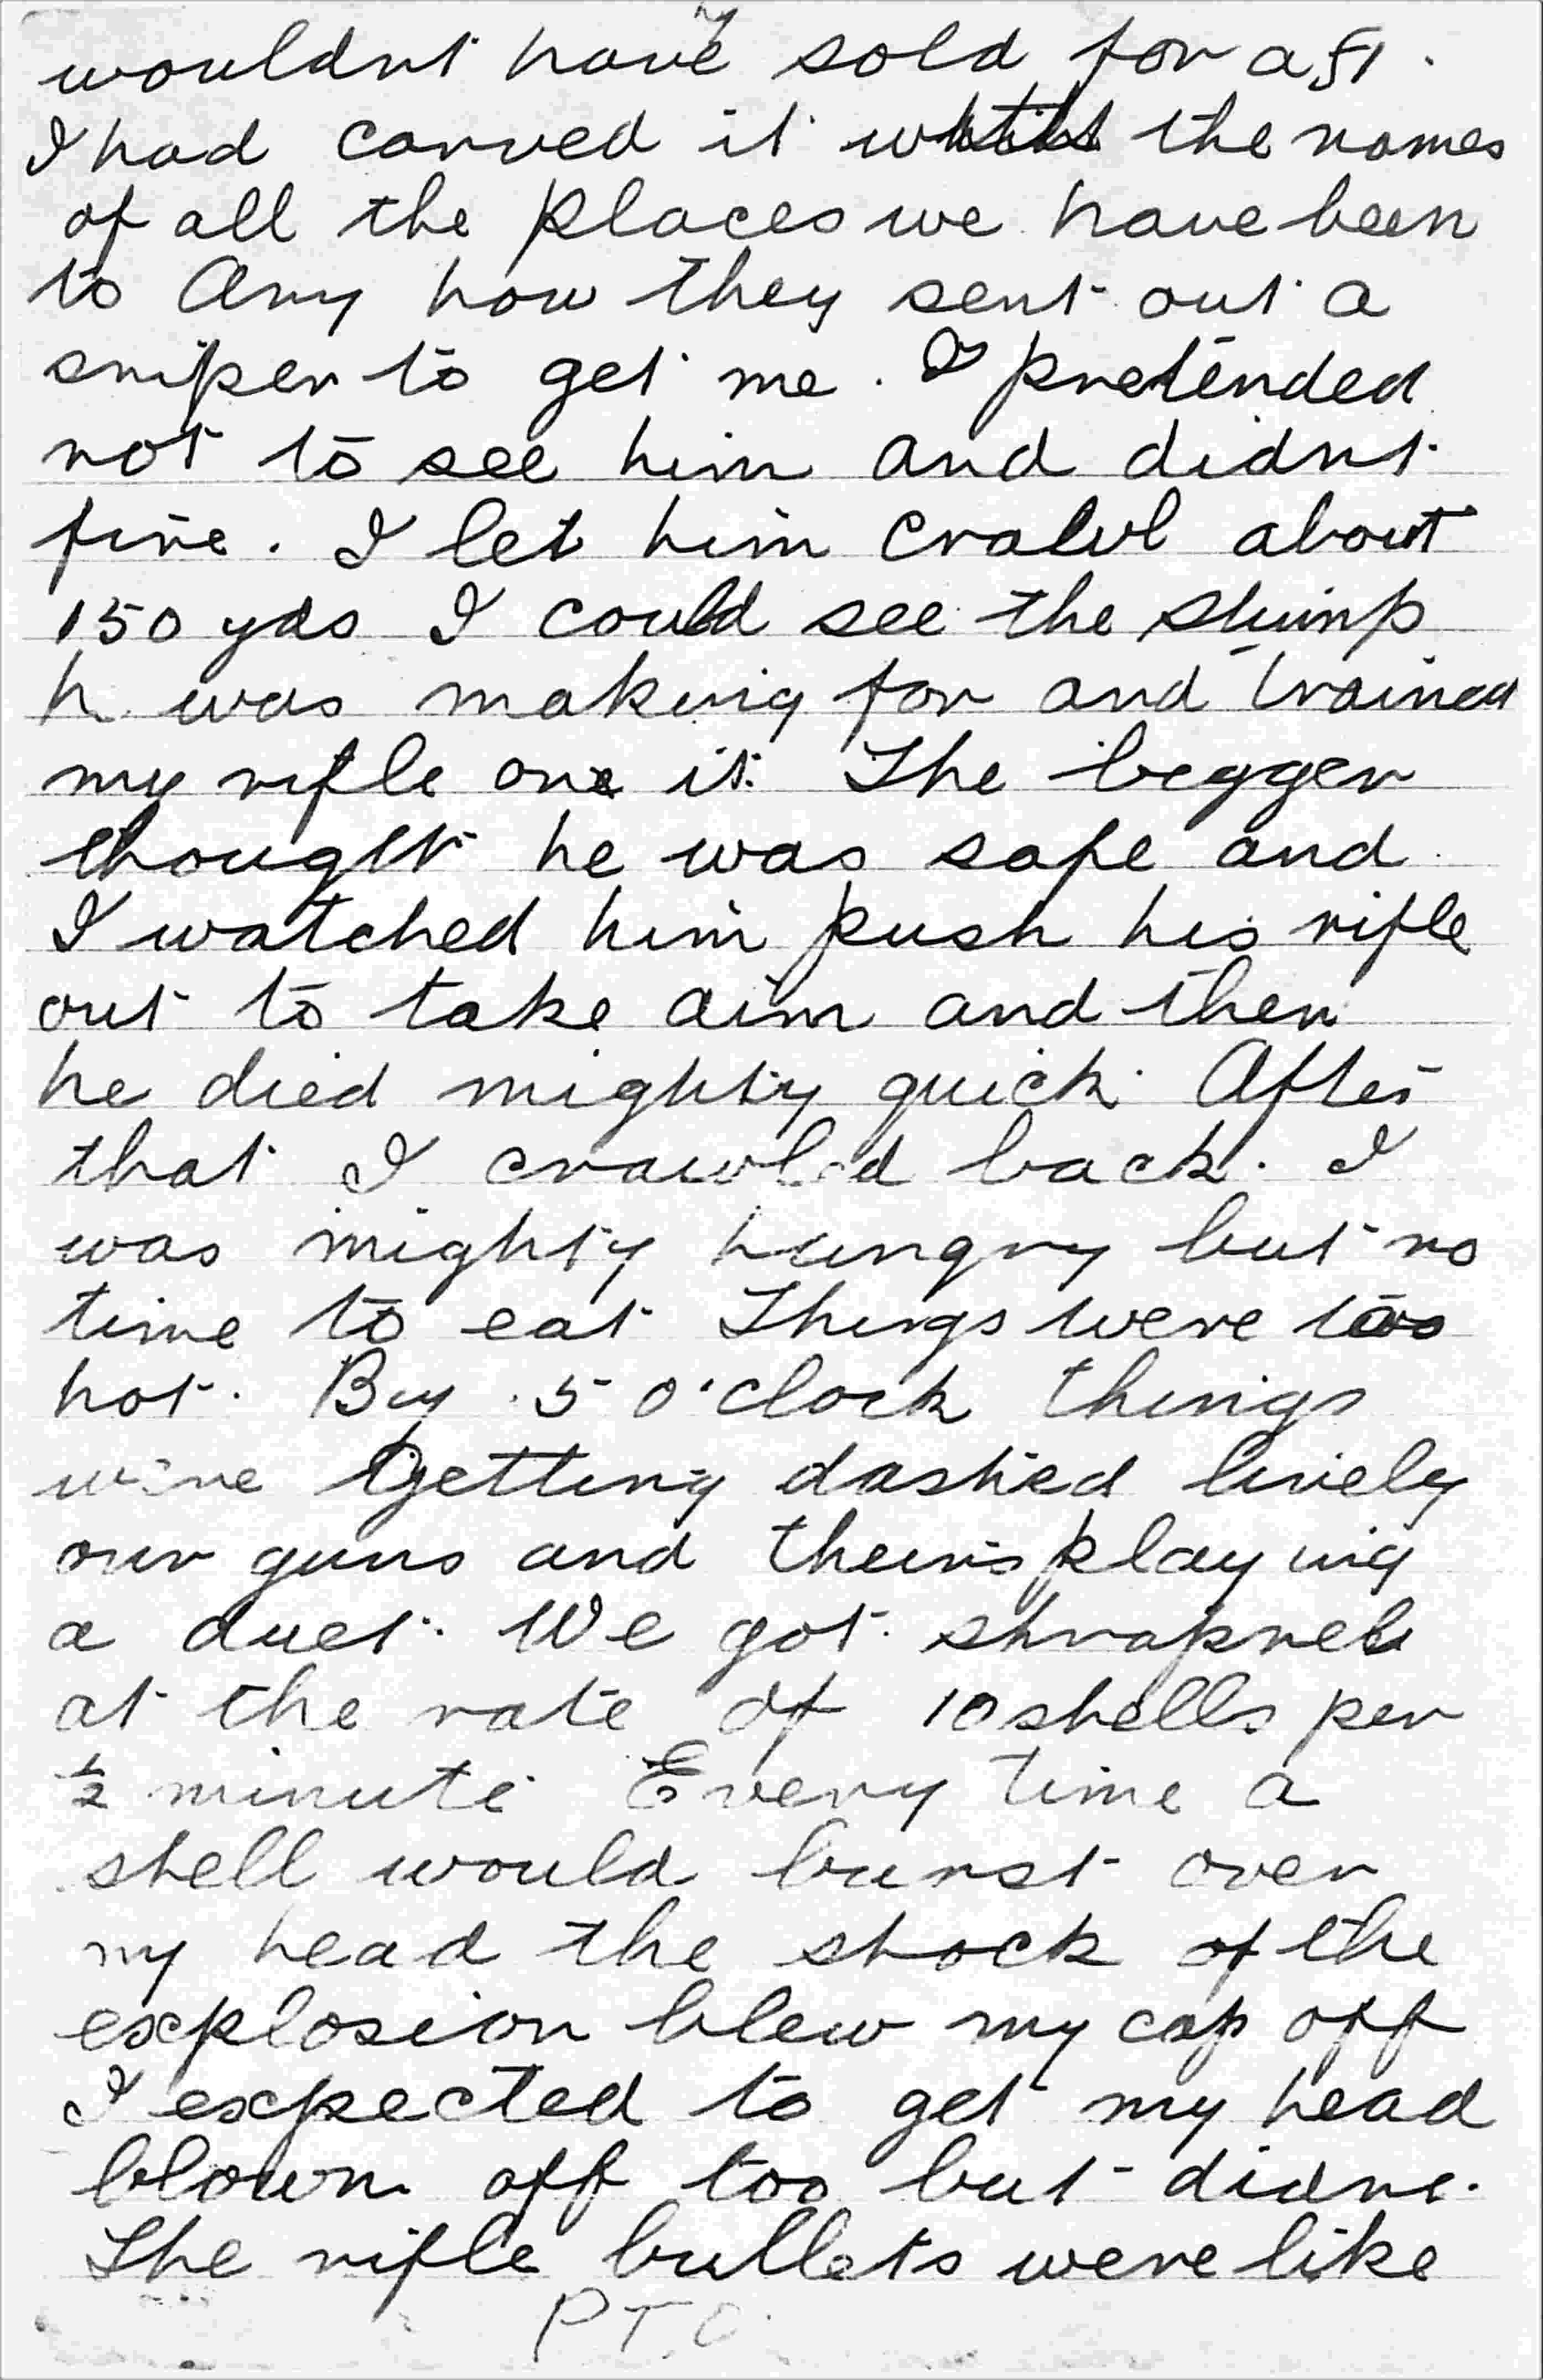 wouldnt have sold for a £1.
I had carved it the names
of all the places we have been
to Any how they sent out a
sniper to get me. I pretended
not to see him and didnt
fire. I let him crawl about
150 yds I could see the stump
h was making for and trained
my rifle one it. The begger
thought he was safe and
I watched him push his rifle
out to take aim and then
he died mighty quick. After
that I crawled back. I
was mighty hungry but no
time to eat Things were too
hot. By 5 o'clock things
were getting dashed lively
our guns and theirs playing
a duet. We got shrapnel
at the rate of 10 shells per
½ minute Every time a
shell would burst over
my head the shock of the
explosion blew my cap off
I expected to get my head
blown off too but didnt.
The rifle bullets were like
PTO